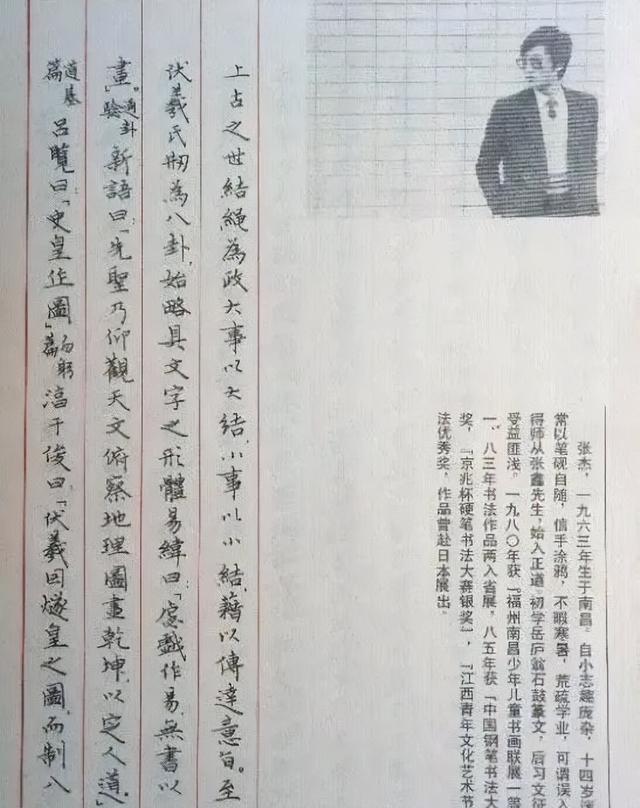 张杰，一九六三年生于南昌。自小志趣庞杂，十四岁迷
常以笔砚自随，信手涂鸦，不暇寒暑，荒疏学业，可谓误
得师从张鑫先生，始入正道。初学岳庐翁石鼓篆文，后习文征
受益匪浅。一九八〇年获「福州南昌少年儿童书画联展一
一、八三年书法作品两入省展，八五年获「中国钢笔书法大
奖，「京兆杯硬笔书法大赛银奖」，「江西青年文化艺术节
法优秀奖，作品曾赴日本展出。
上古之世結繩為政大事以大結，小事以小結，藉以傳達意旨。至
伏羲氏刱為八卦，始略具文字之形體易緯曰「虙戲作易，無書以
畫」通卦驗 新語曰「先聖乃仰觀天文俯察地理圖畫乾坤，以定人道。」
道基篇 呂覽曰「史皇作圖」勿躬篇 淳于俊曰「伏羲因燧皇之圖，而制八